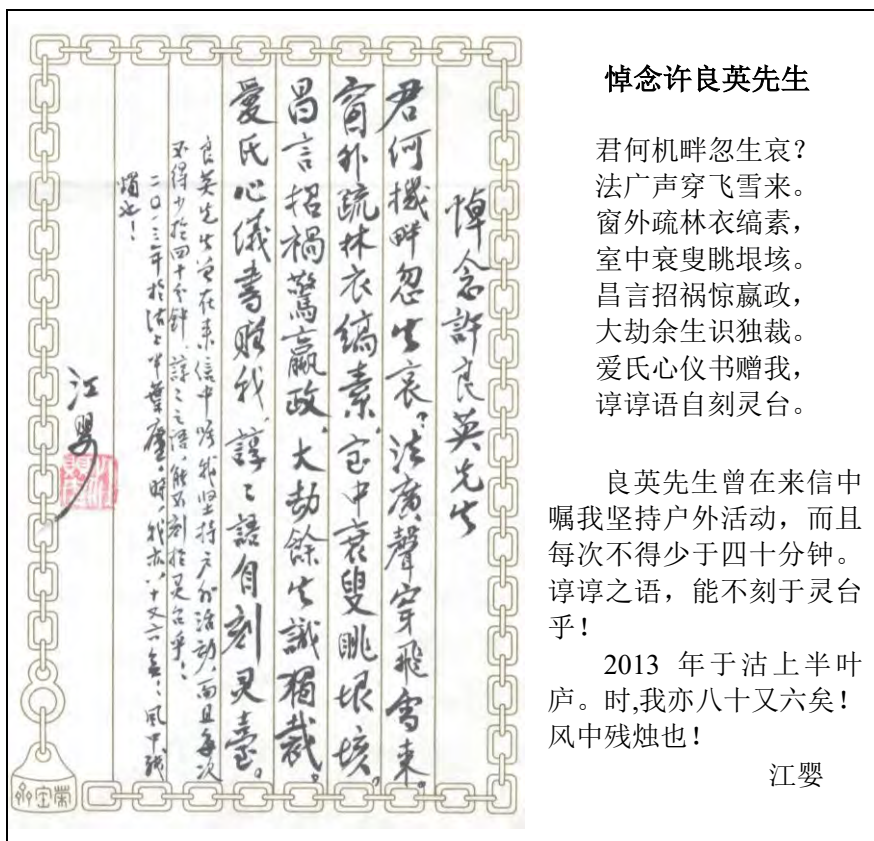 悼念許良英先生
君何機畔忽生哀？法廣聲穿飛雪來。
窗外疏林衣縞素，室中衰叟眺垠垓。
昌言招禍驚嬴政，大劫餘生識獨裁。
愛氏心儀書贈我，諄〻語自刻灵臺。
良英先生曾在来信中嘱我坚持户外活动，而且每次
不得少於四十分鈡。諄〻之语，能不刻於灵台乎！
二〇一三年於沽上半葉廬。時，我亦八十又六矣！風中残
燭也！
江嬰
榮宝斋
悼念许良英先生
君何机畔忽生哀？
法广声穿飞雪来。
窗外疏林衣缟素，
室中衰叟眺垠垓。
昌言招祸惊嬴政，
大劫余生识独裁。
爱氏心仪书赠我，
谆谆语自刻灵台。
良英先生曾在来信中
嘱我坚持户外活动，而且
每次不得少于四十分钟。
谆谆之语，能不刻于灵台
乎！
2013 年于沽上半叶
庐。时,我亦八十又六矣！
风中残烛也！
江婴